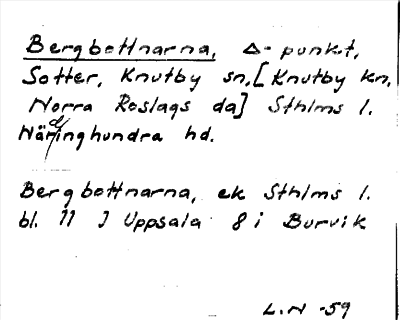 Bergbottnarna, Δ-punkt,
Sotter, Knutby sn, [Knutby kn,
Norra Roslags da] Sthlms l.
Närdinghundra hd.
Bergbottnarna, ek Sthlms l.
bl. 11 J Uppsala 8 i Burvik
L.N -59